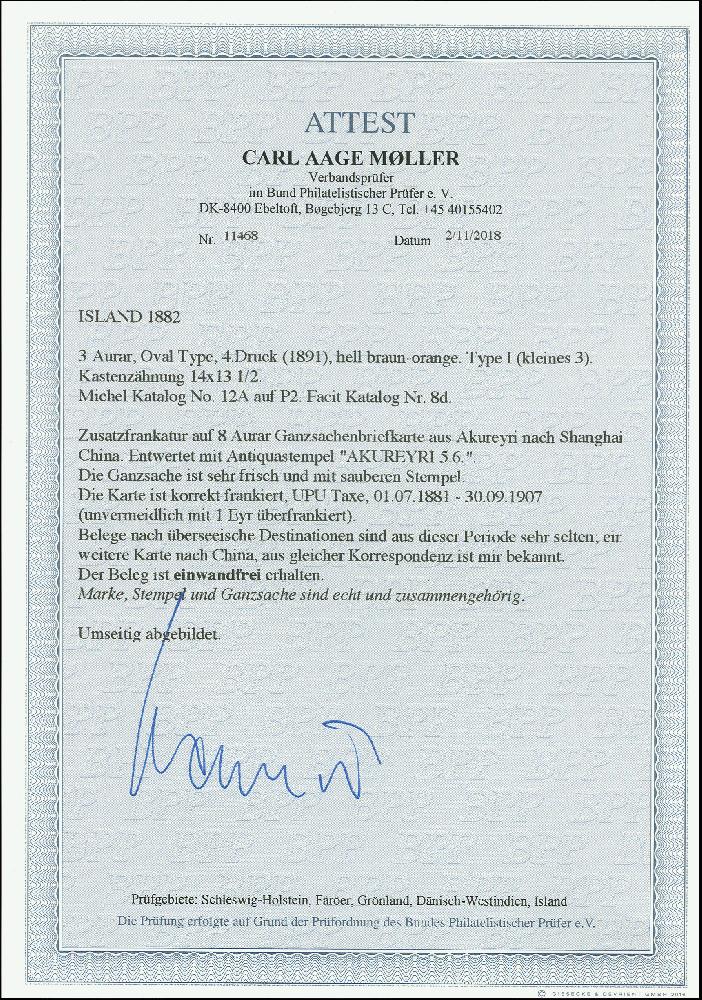 ATTEST
CARL AAGE MØLLER
Verbandsprüfer
im Bund Philatelistischer Prüfer e. V.
DK-8400 Ebeltoft, Bøgebjerg 13 C, Tel. +45 40155402
Nr. 11468 Datum 2/11/2018
ISLAND 1882
3 Aurar, Oval Type, 4.Druck (1891), hell braun-orange. Type I (kleines 3).
Kastenzähnung 14x13 1/2.
Michel Katalog No. 12A auf P2. Facit Katalog Nr. 8d.
Zusatzfrankatur auf 8 Aurar Ganzsachenbriefkarte aus Akureyri nach Shanghai
China. Entwertet mit Antiquastempel "AKUREYRI 5.6.".
Die Ganzsache ist sehr frisch und mit sauberen Stempel.
Die Karte ist korrekt frankiert, UPU Taxe, 01.07.1881 - 30.09.1907
(unvermeidlich mit 1 Eyr überfrankiert).
Belege nach überseeische Destinationen sind aus dieser Periode sehr selten, eir
weitere Karte nach China, aus gleicher Korrespondenz ist mir bekannt.
Der Beleg ist einwandfrei erhalten.
Marke, Stempel und Ganzsache sind echt und zusammengehörig.
Umseitig abgebildet.
Prüfgebiete: Schleswig-Holstein, Färöer, Grönland, Dänisch-Westindien, Island
Die Prüfung erfolgte auf Grund der Prüfordnung des Bundes Philatelistischer Prüfer e.V.
GIESECKE & DEVRIENT GMBH